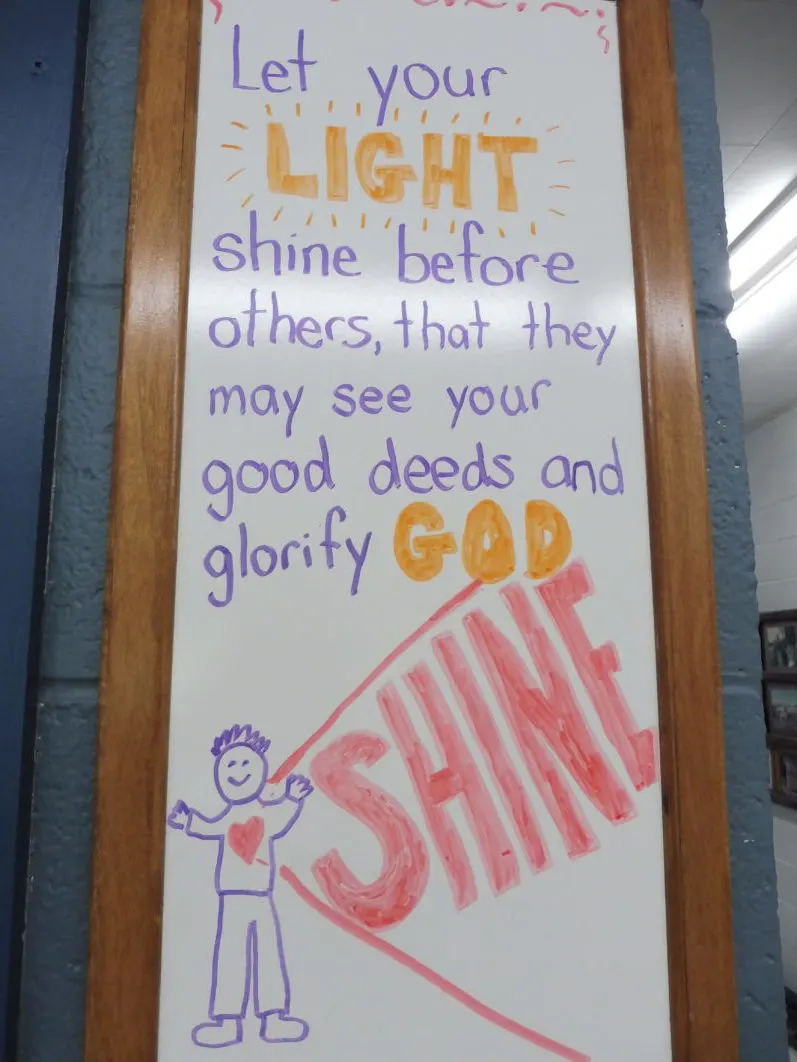 Let your
LIGHT
shine before
others, that they
may see your
good deeds and
glorify GOD
SHINE